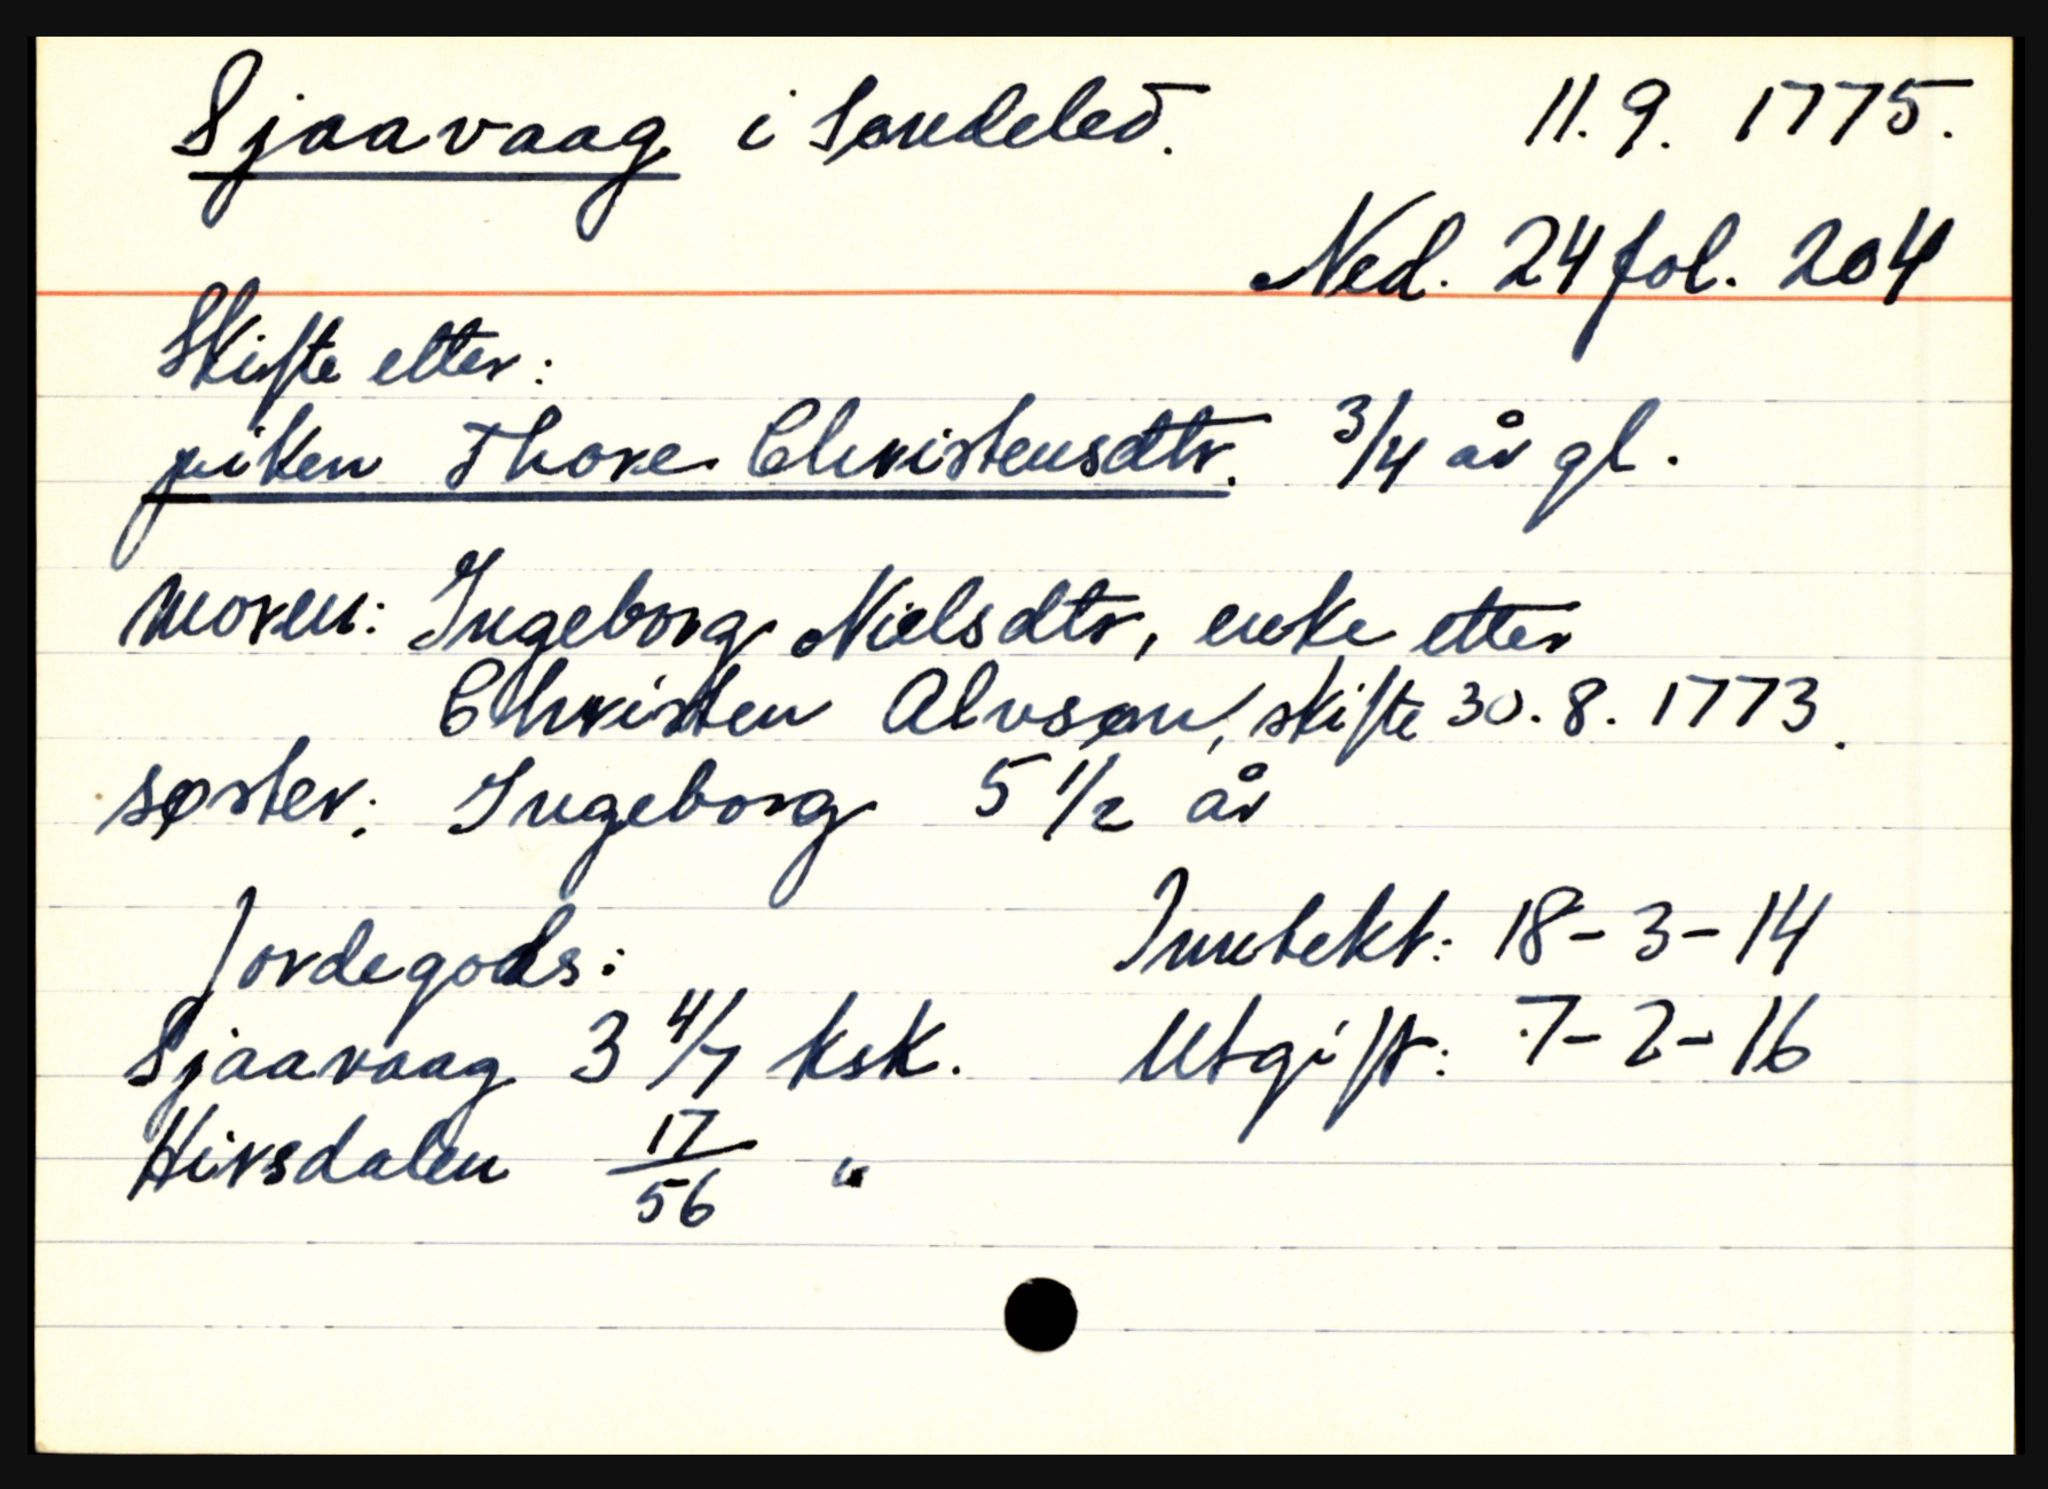 Sjaavaag i Søndeled. 11.9. 1775.
Ned. 24 fol. 204
Skifte etter:
piken Thore Christensdtr. 3/4 år gl.
moren: Ingeborg Nielsdtr, enke etter
Christen Alvsøn, skifte 30.8.1773.
søster: Ingeborg 5 1/2 år
Jordegods: Inntekt: 18-3-14
Sjaavaag 3 4/7 ksk. Utgift: 7-2-16
Hirsdalen 17/56 "